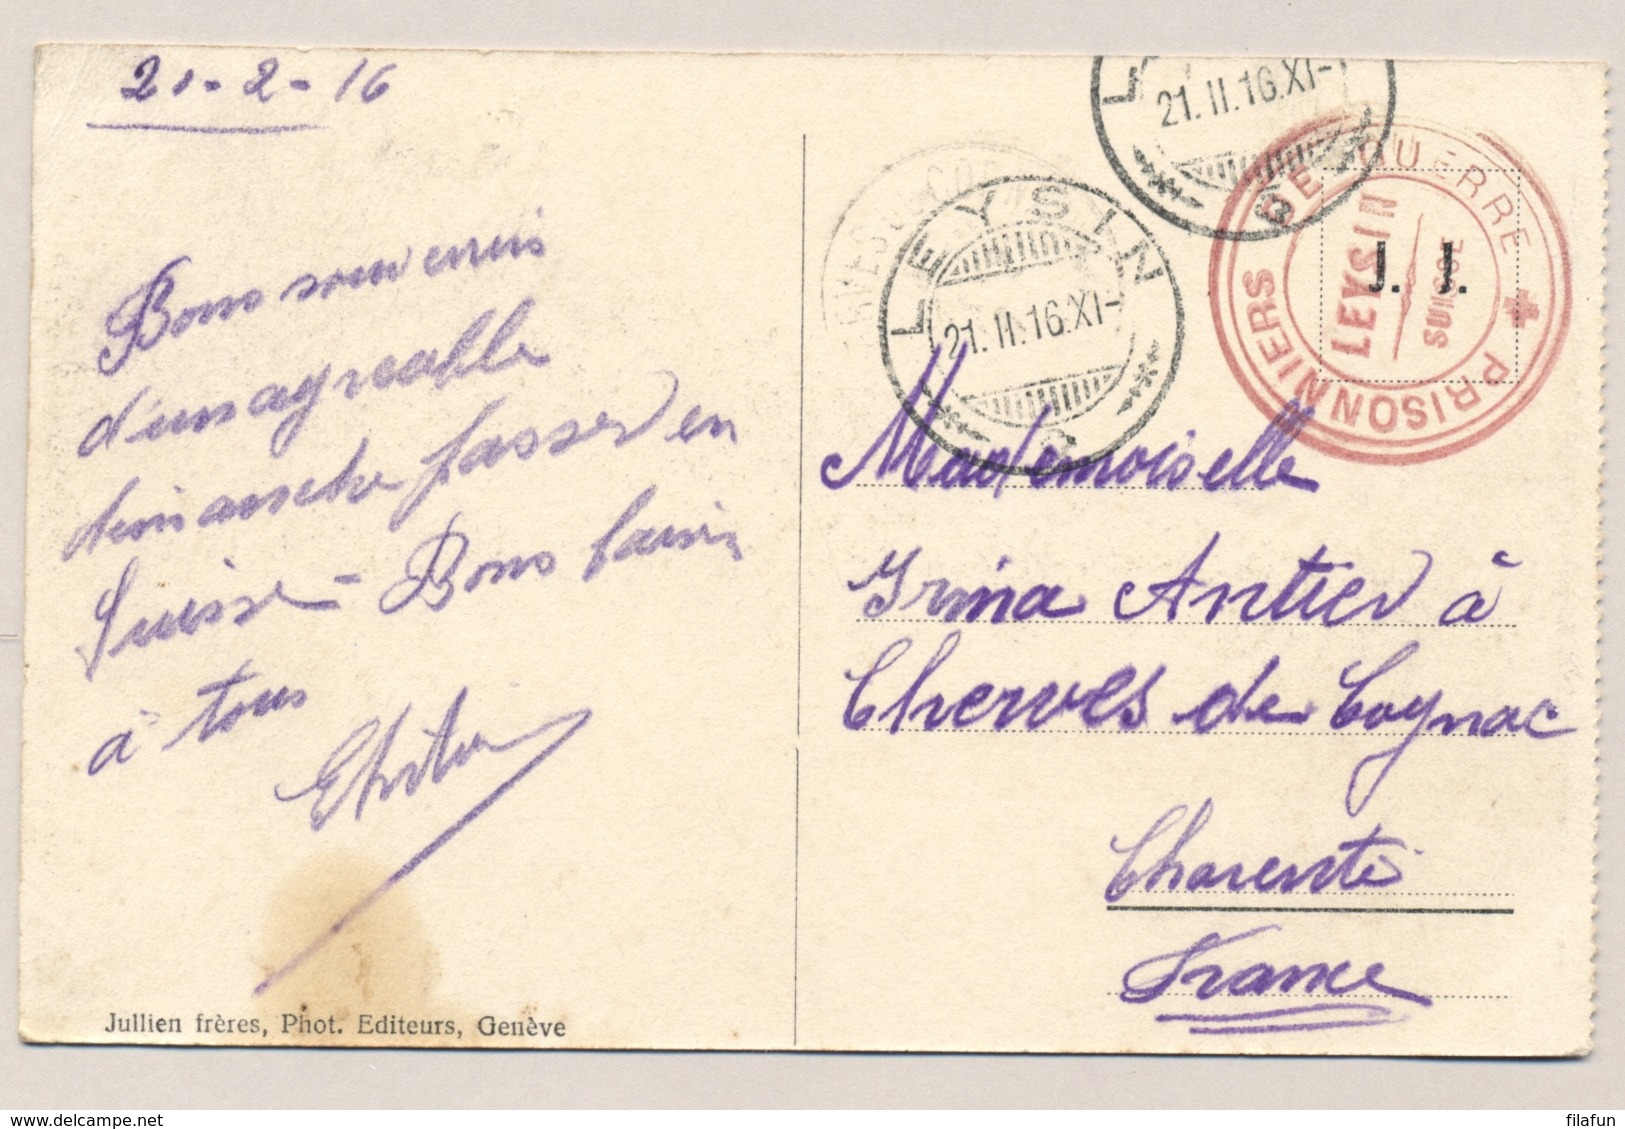 21-2-16
Bons souvenirs
d'un agréable
dimanche passer en
Suisse - Bons baisers
à tous
Jullien frères, Phot. Editeurs, Genève
LEYSIN
21.II.16.XI-
LEYSIN
21.II.16.XI-
PRISONNIERS DE GUERRE
LEYSIN
SUISSE
J. J.
Mademoiselle
Irina Antier à
Cherves de Cognac
Charente
France
delcampe.net
filafun